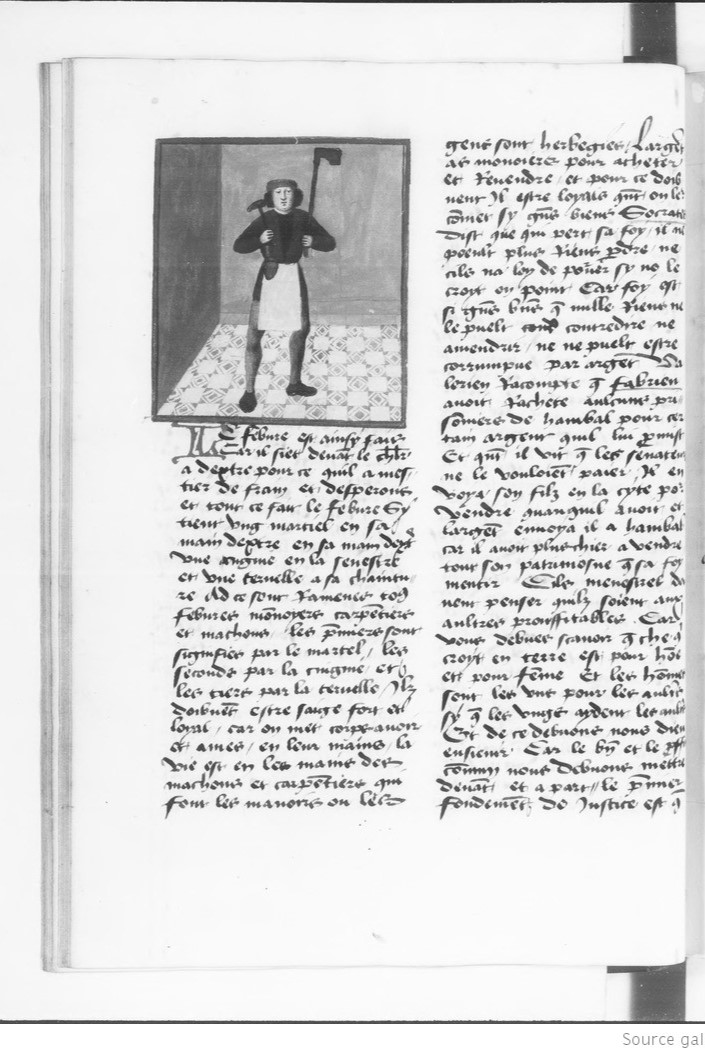 Le febure est ainsy fais
Car il siet devāt le chl̄r
a dextre pour ce quil a mes
tier de frain et desperons
et tout ce fait le febure Sy
tient vng martiel en sa
main dextre en sa main dext̄
vne en la senestre
et vne teruelle a sa chaintu
re Ad ce sont Ramenes to9
febures mōnoyers carpētiers
et machons les p̄miers sont
signifies par le martel les
seconds par la et
les tiers par la teruelle Ilz
doibuēt estre saige fort et
loyal car on met corps auoir
et ames en leur mains la
vie est en les mains des
machons et carpētiers qui
font les manoirs ou les
gens sont herbegies Larget
as monoiers pour acheter
et Reuendre et pour ce doib
uent Il estre loyals qn̄t on le
cōmet sy biens Socrate
dist que qui pert sa foy il n
poeult plus Riens p̄dre ne
cils na loy de sy no le
croyt on point Car foy est
si gn̄s bn̄s q̄ nulle Riens ne
le puelt contredire ne
amendrir ne ne puelt estre
corrumpue par argēt Va
lerien Racompte q̄ Fabrien
auoit Rachete aulcuns pri
soniers de hanibal pour cer
tain argent quil lui p̄mist
Et qn̄t il vit q̄ les senateu
ne le vouloiēt paier Il en
voya son filz en la cyte po
vendre quanquil auoit et
largēt enuoya il a hanibal
car il auoit plus chier a vendre
tout son patrimosne q̄ sa foy
mentir Cils menestrel do
uent penser quilz soient aux
aultres prouffitables Car
vous debues scauoir q̄ che q̄
croyt en terre est pour hōe
et pour fēme Et les hōmes
sont les vns pour les aultr
sy q̄ les vngs aydent les aul
Et de ce debuons nous dieu
ensieuir Car le bn̄ et le
cōmun nous debuons mettre
deuāt et a part le p̄mier
fondemēt de Justice est q̄
Source gal